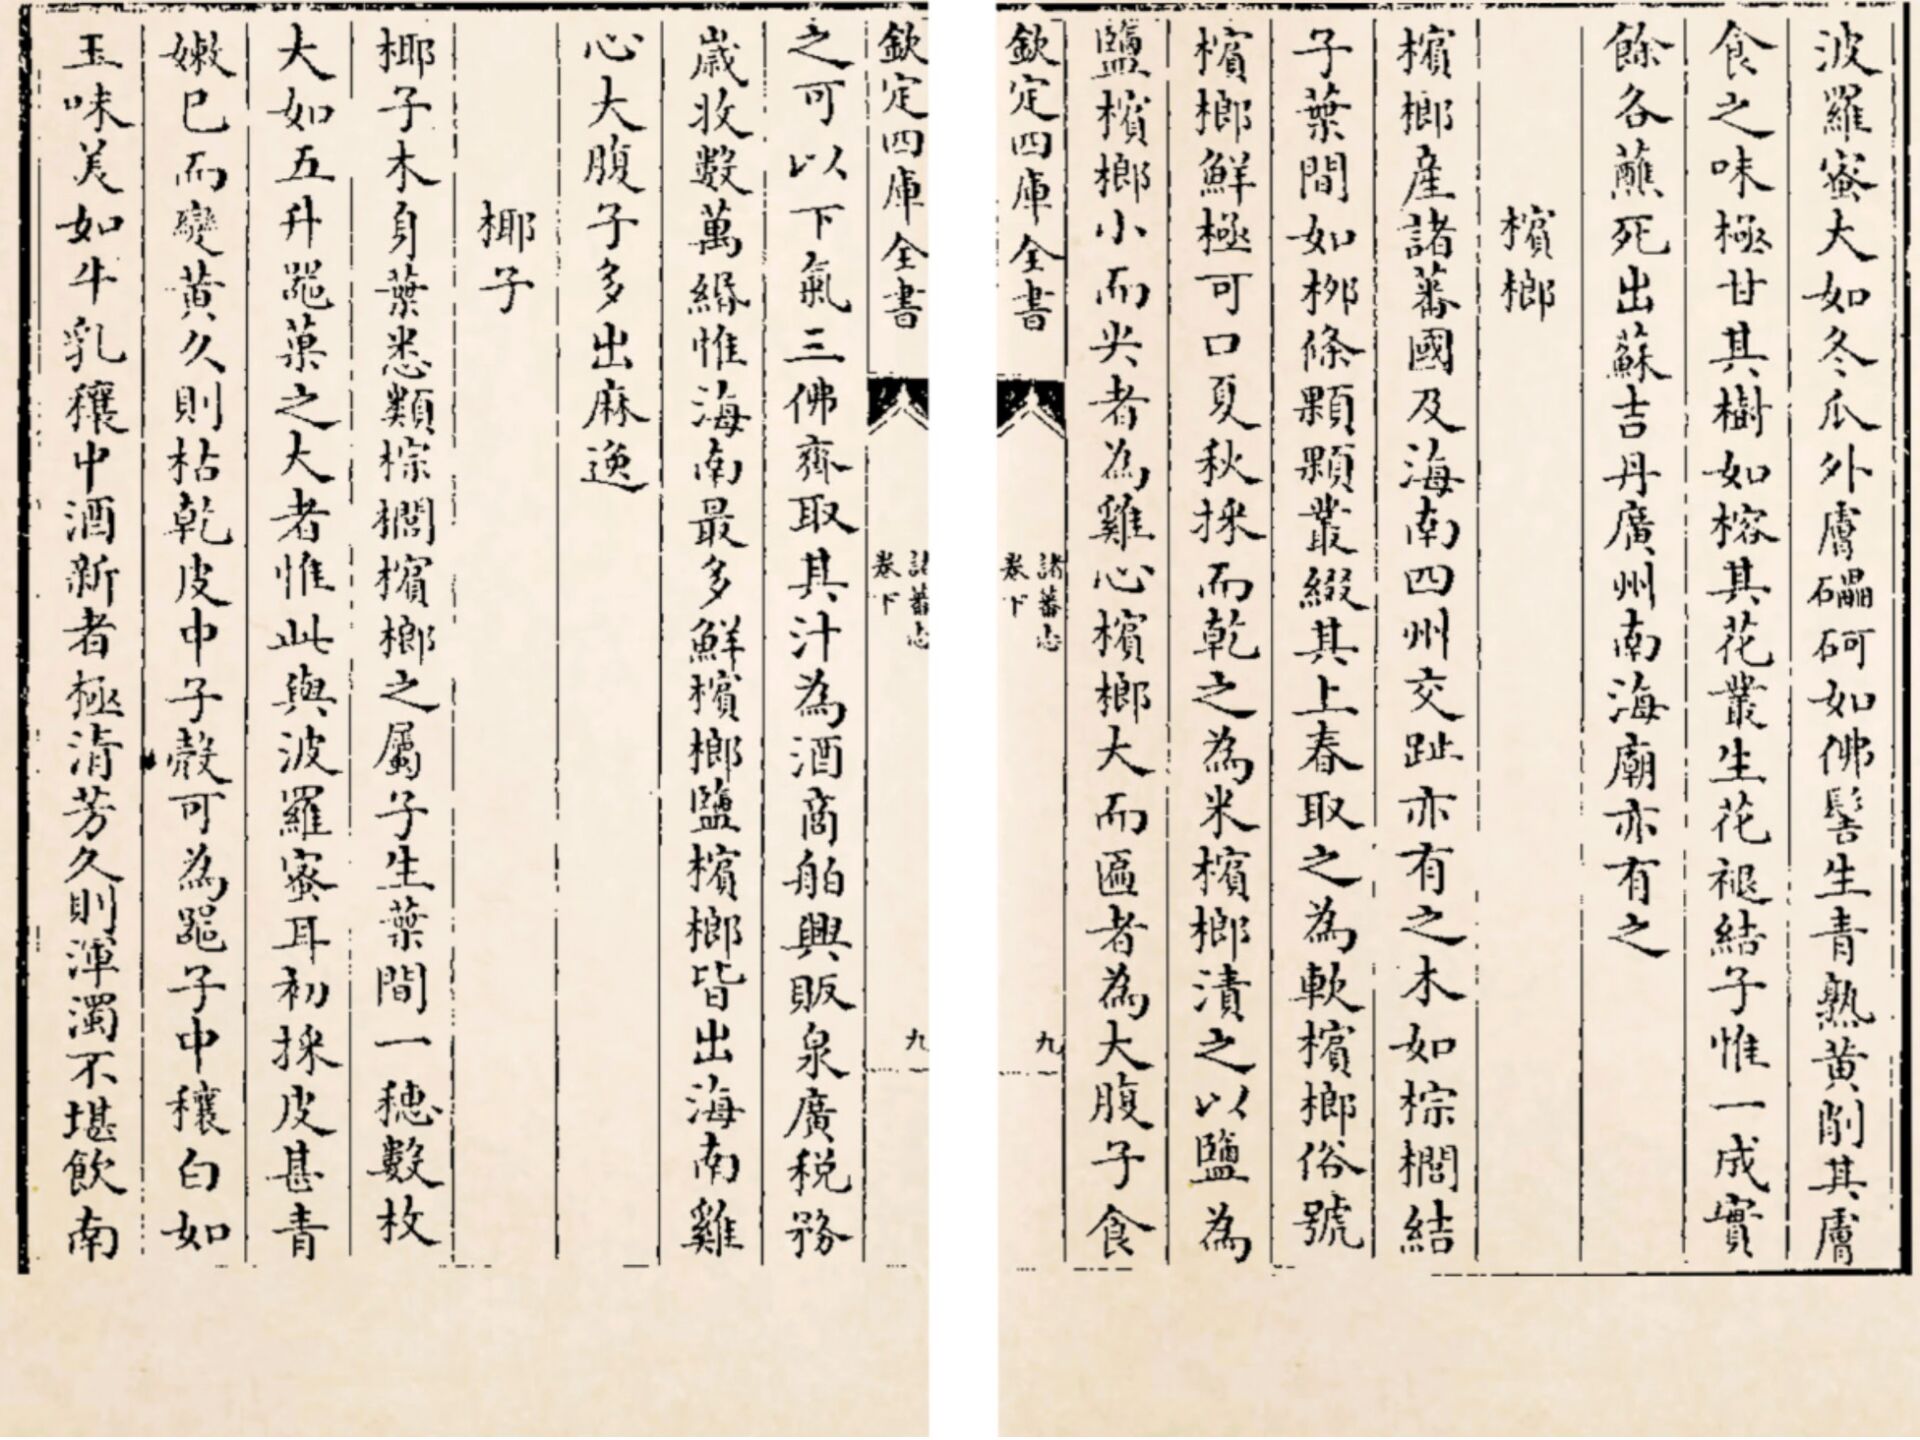 波羅蜜大如冬瓜外膚礧砢如佛髻生青熟黃削其膚
食之味極甘其樹如榕其花叢生花褪結子惟一成實
餘各蘸死出蘇吉丹廣州南海廟亦有之
檳榔
檳榔產諸蕃國及海南四州交趾亦有之木如棕櫚結
子葉間如栁條顆顆叢綴其上春取之為軟檳榔俗號
檳榔鮮極可口夏秋採而乾之為米檳榔漬之以鹽為
鹽檳榔小而尖者為雞心檳榔大而匾者為大腹子食
欽定四庫全書
諸蕃志
卷下
九
欽定四庫全書
諸蕃志
卷下
九
之可以下氣三佛齊取其汁為酒商舶興販泉廣稅務
歲收數萬緡惟海南最多鮮檳榔鹽檳榔皆出海南雞
心大腹子多出麻逸
椰子
椰子木身葉悉類棕櫚檳榔之屬子生葉間一穗數枚
大如五升噐菓之大者惟此與波羅蜜耳初採皮甚青
嫩已而變黃久則枯乾皮中子殼可為噐子中穰白如
玉味美如牛乳穰中酒新者極清芳久則渾濁不堪飲南